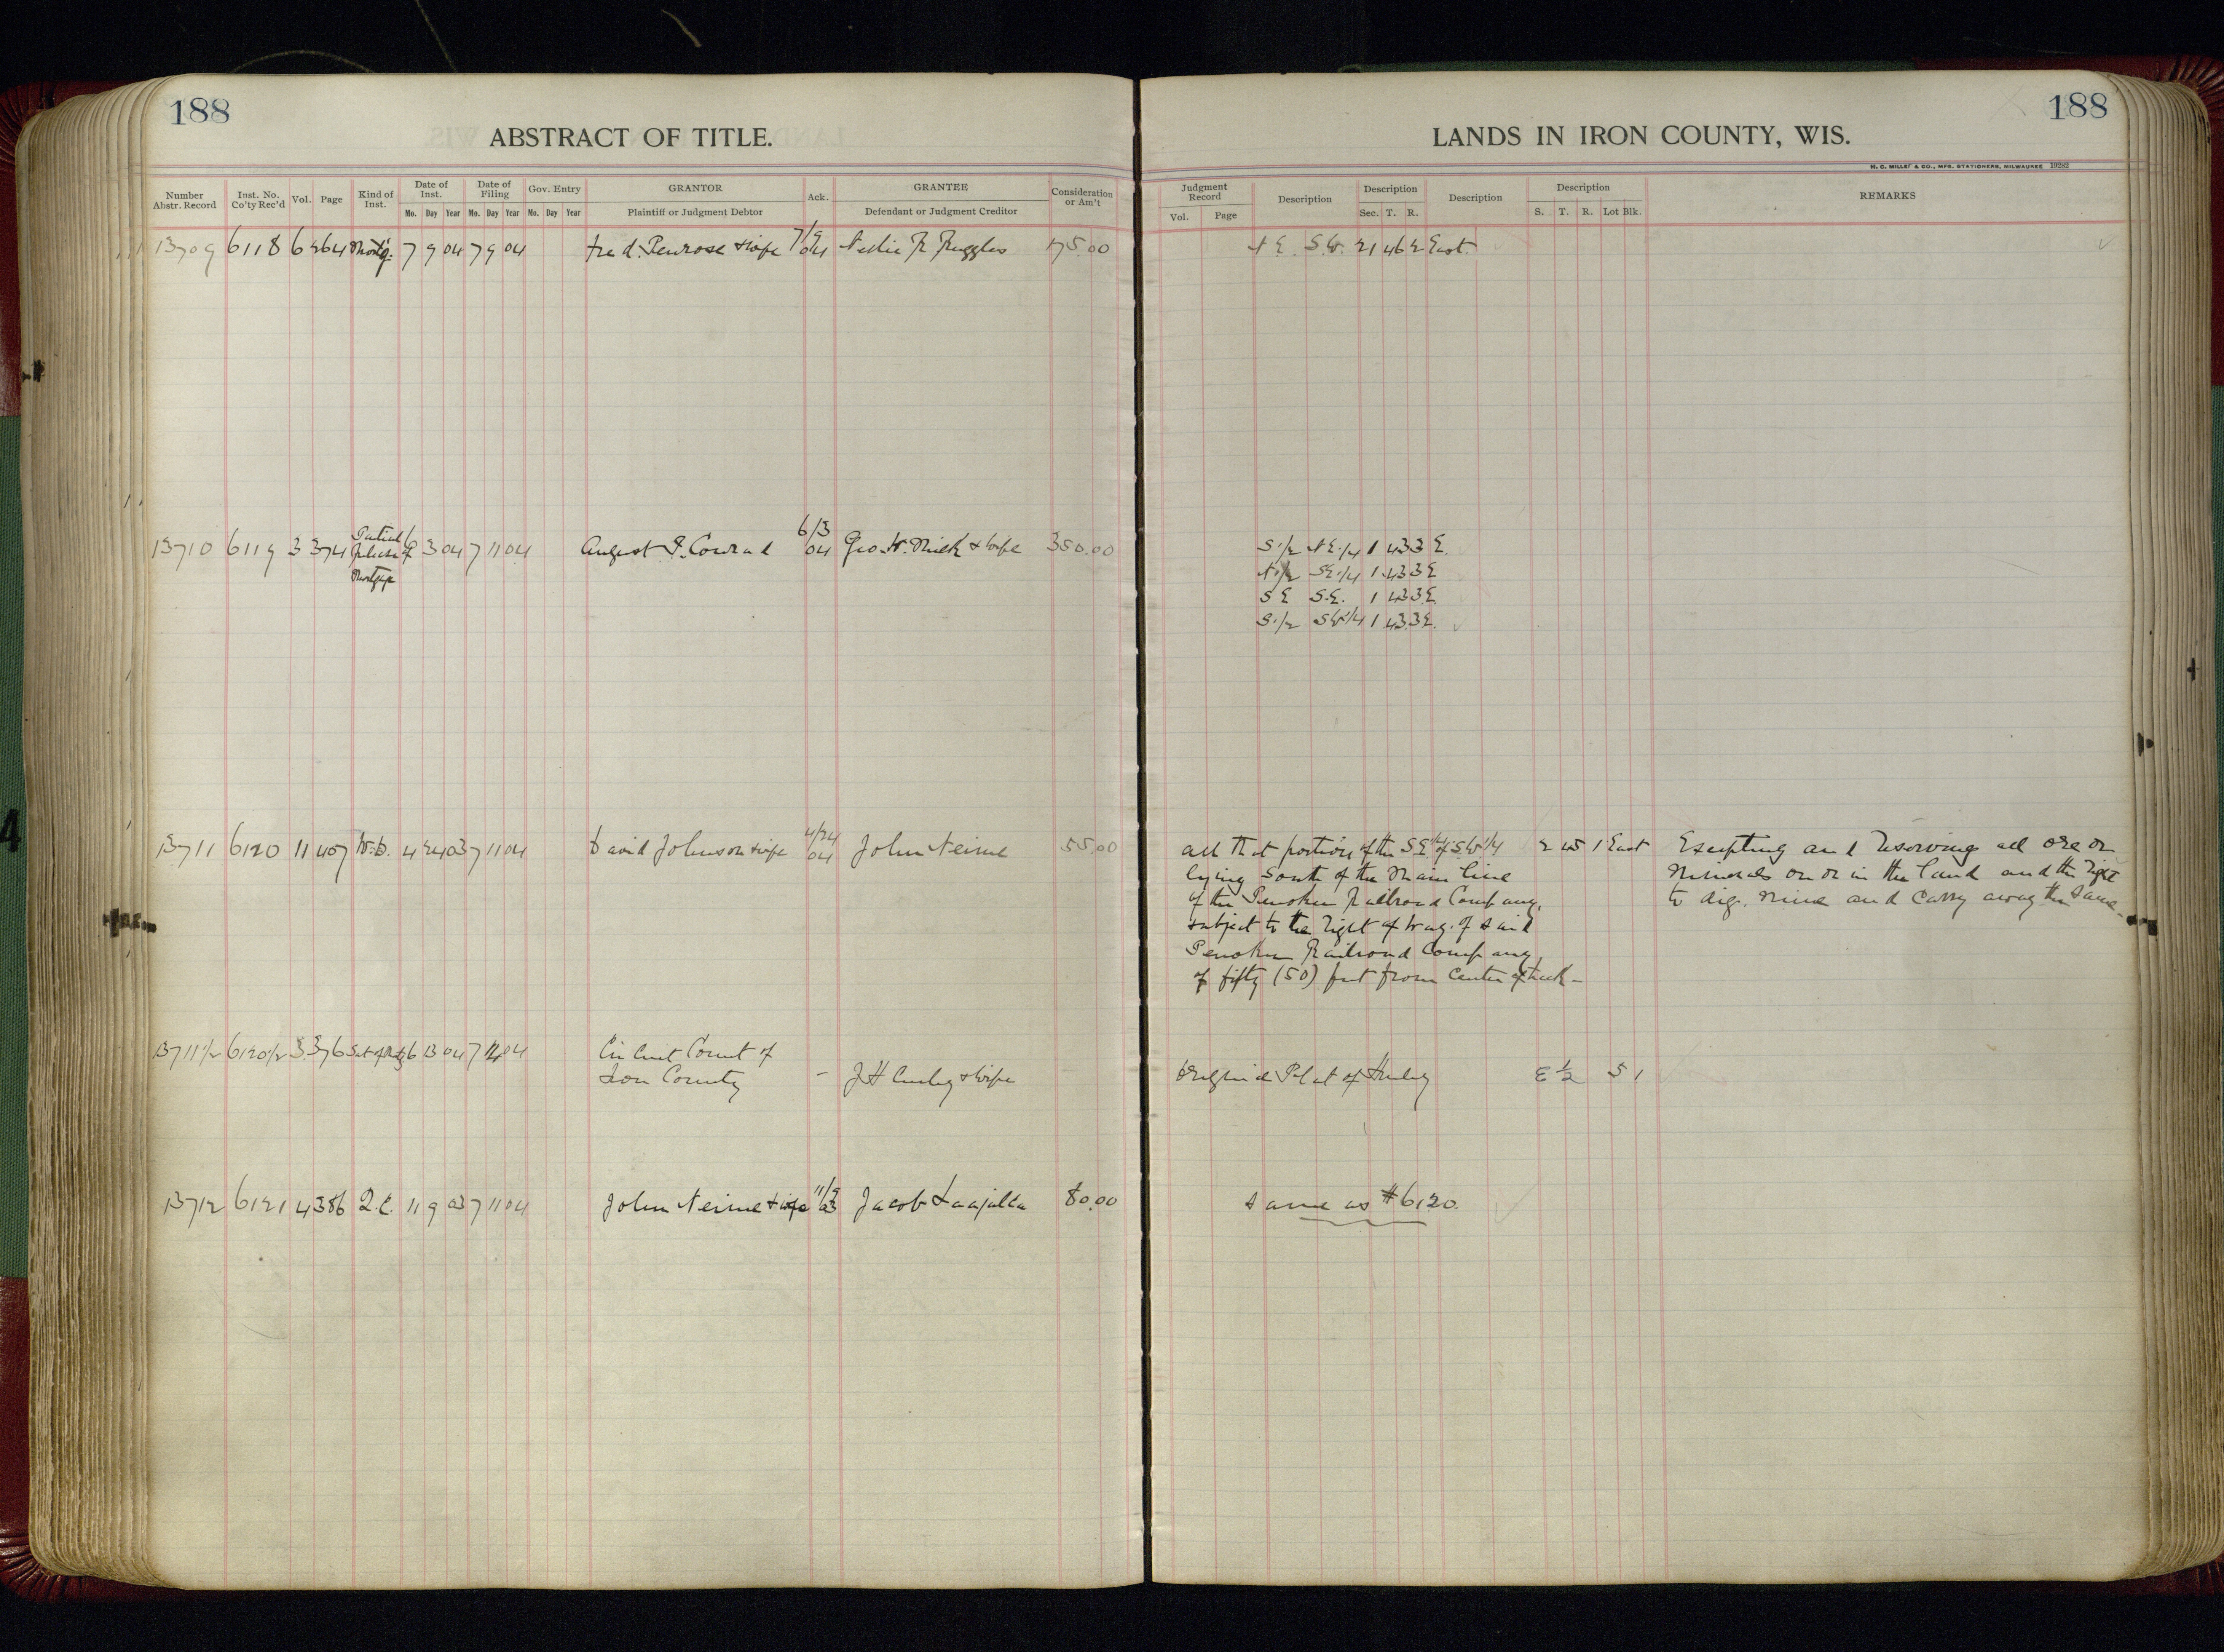 188
ABSTRACT OF TITLE.
Number Abstr. Record | Inst. No. Co'ty Rec'd | Vol. | Page | Kind of Inst. | Date of Inst. Mo. Day Year | Date of Filing Mo. Day Year | Gov. Entry Mo. Day Year | GRANTOR Plaintiff or Judgment Debtor | Ack. | GRANTEE Defendant or Judgment Creditor | Consideration or Am't
13709 6118 6 264 Mortg. 7 9 04 7 9 04 Fred. Penrose & wife 7/9 04 Nellie R Ruggles 175.00
13710 6119 3 374 Partial Release of Mortgage 6 3 04 7 11 04 August P. Conrad 6/3 04 Geo. W. & wife 350.00
13711 6120 11 407 W.D. 4 24 03 7 11 04 David Johnson & wife 4/24 04 John Neime 55.00
13711 1/2 6120 1/2 3 376 Sat of Mtg 6 13 04 7 04 Circuit Court of
Iron County - J H & wife
13712 6121 4 386 Q.C. 11 9 03 7 11 04 John Neime & wife 11/9 03 Jacob Laajalla 80.00
188
LANDS IN IRON COUNTY, WIS.
H. C. MILLER & CO., MFG. STATIONERS, MILWAUKEE 19282
Judgment Record Vol. Page | Description | Description Sec. T. R. | Description | Description S. T. R. Lot Blk. | REMARKS
N E. S.W. 21 46 2 East.
S. 1/2 N E. 1/4 1 43 3 E.
N. 1/2 S E. 1/4 1 43 3 E
S E S.E. 1 43 3 E
S. 1/2 S W 1/4 1 43 3 E.
all that portion of the S E 1/4 of S.W. 1/4 2 45 1 East Excepting and reserving all ore or
lying South of the Main line minerals on or in the land and the right
of the Penokee Railroad Company, to dig, mine and carry away the same.
subject to the right of way of said
Penokee Railroad Company
of fifty (50) feet from center of track -
Original Plat of Hurley E 1/2 5 1
Same as #6120.